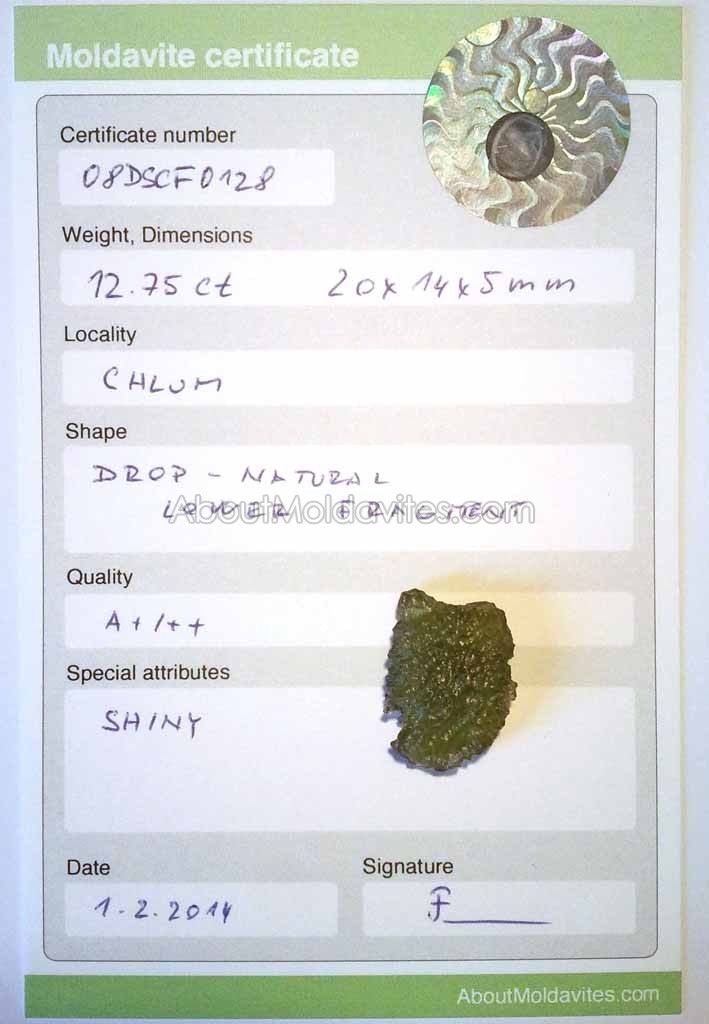 Moldavite certificate
Certificate number
08DSCF0128
Weight, Dimensions
12.75 ct 20x14x5mm
Locality
CHLUM
Shape
DROP - NATURAL
LOWER FRAGMENT
AboutMoldavites.com
Quality
A+/++
Special attributes
SHINY
Date
1.2.2014
Signature
F
AboutMoldavites.com